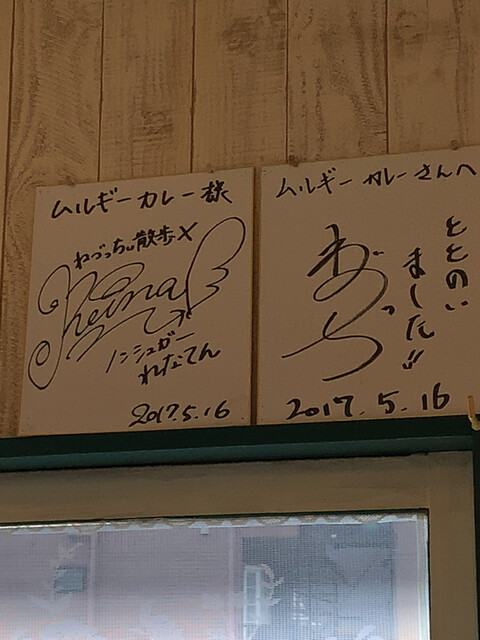 ムルギーカレー様
ねづっちの散歩×
Rena
ノンシュガー
れなてん
2017.5.16
ムルギーカレーさんへ
ととのい
ました!!
ねづっち
2017.5.16